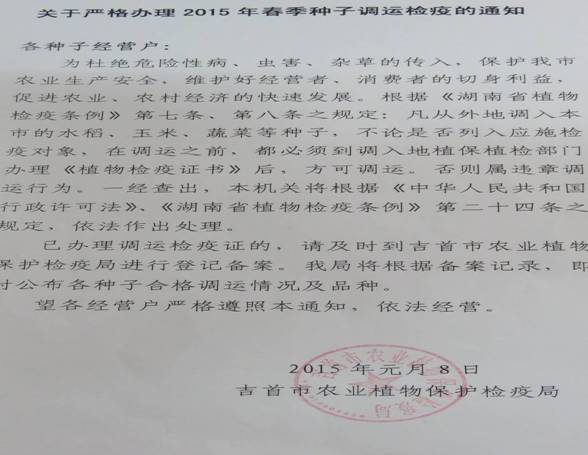 关于严格办理2015年春季种子调运检疫的通知
各种子经营户：
为杜绝危险性病、虫害、杂草的传入，保护我市
农业生产安全，维护好经营者、消费者的切身利益，
促进农业、农村经济的快速发展。根据《湖南省植物
检疫条例》第七条、第八条之规定：凡从外地调入本
市的水稻、玉米、蔬菜等种子，不论是否列入应施检
疫对象，在调运之前，都必须到调入地植保植检部门
办理《植物检疫证书》后，方可调运。否则属违章调
运行为。一经查出，本机关将根据《中华人民共和国
行政许可法》、《湖南省植物检疫条例》第二十四条之
规定，依法作出处理。
已办理调运检疫证的，请及时到吉首市农业植物
保护检疫局进行登记备案。我局将根据备案记录，即
时公布各种子合格调运情况及品种。
望各经营户严格遵照本通知，依法经营。
2015年元月8日
吉首市农业植物保护检疫局